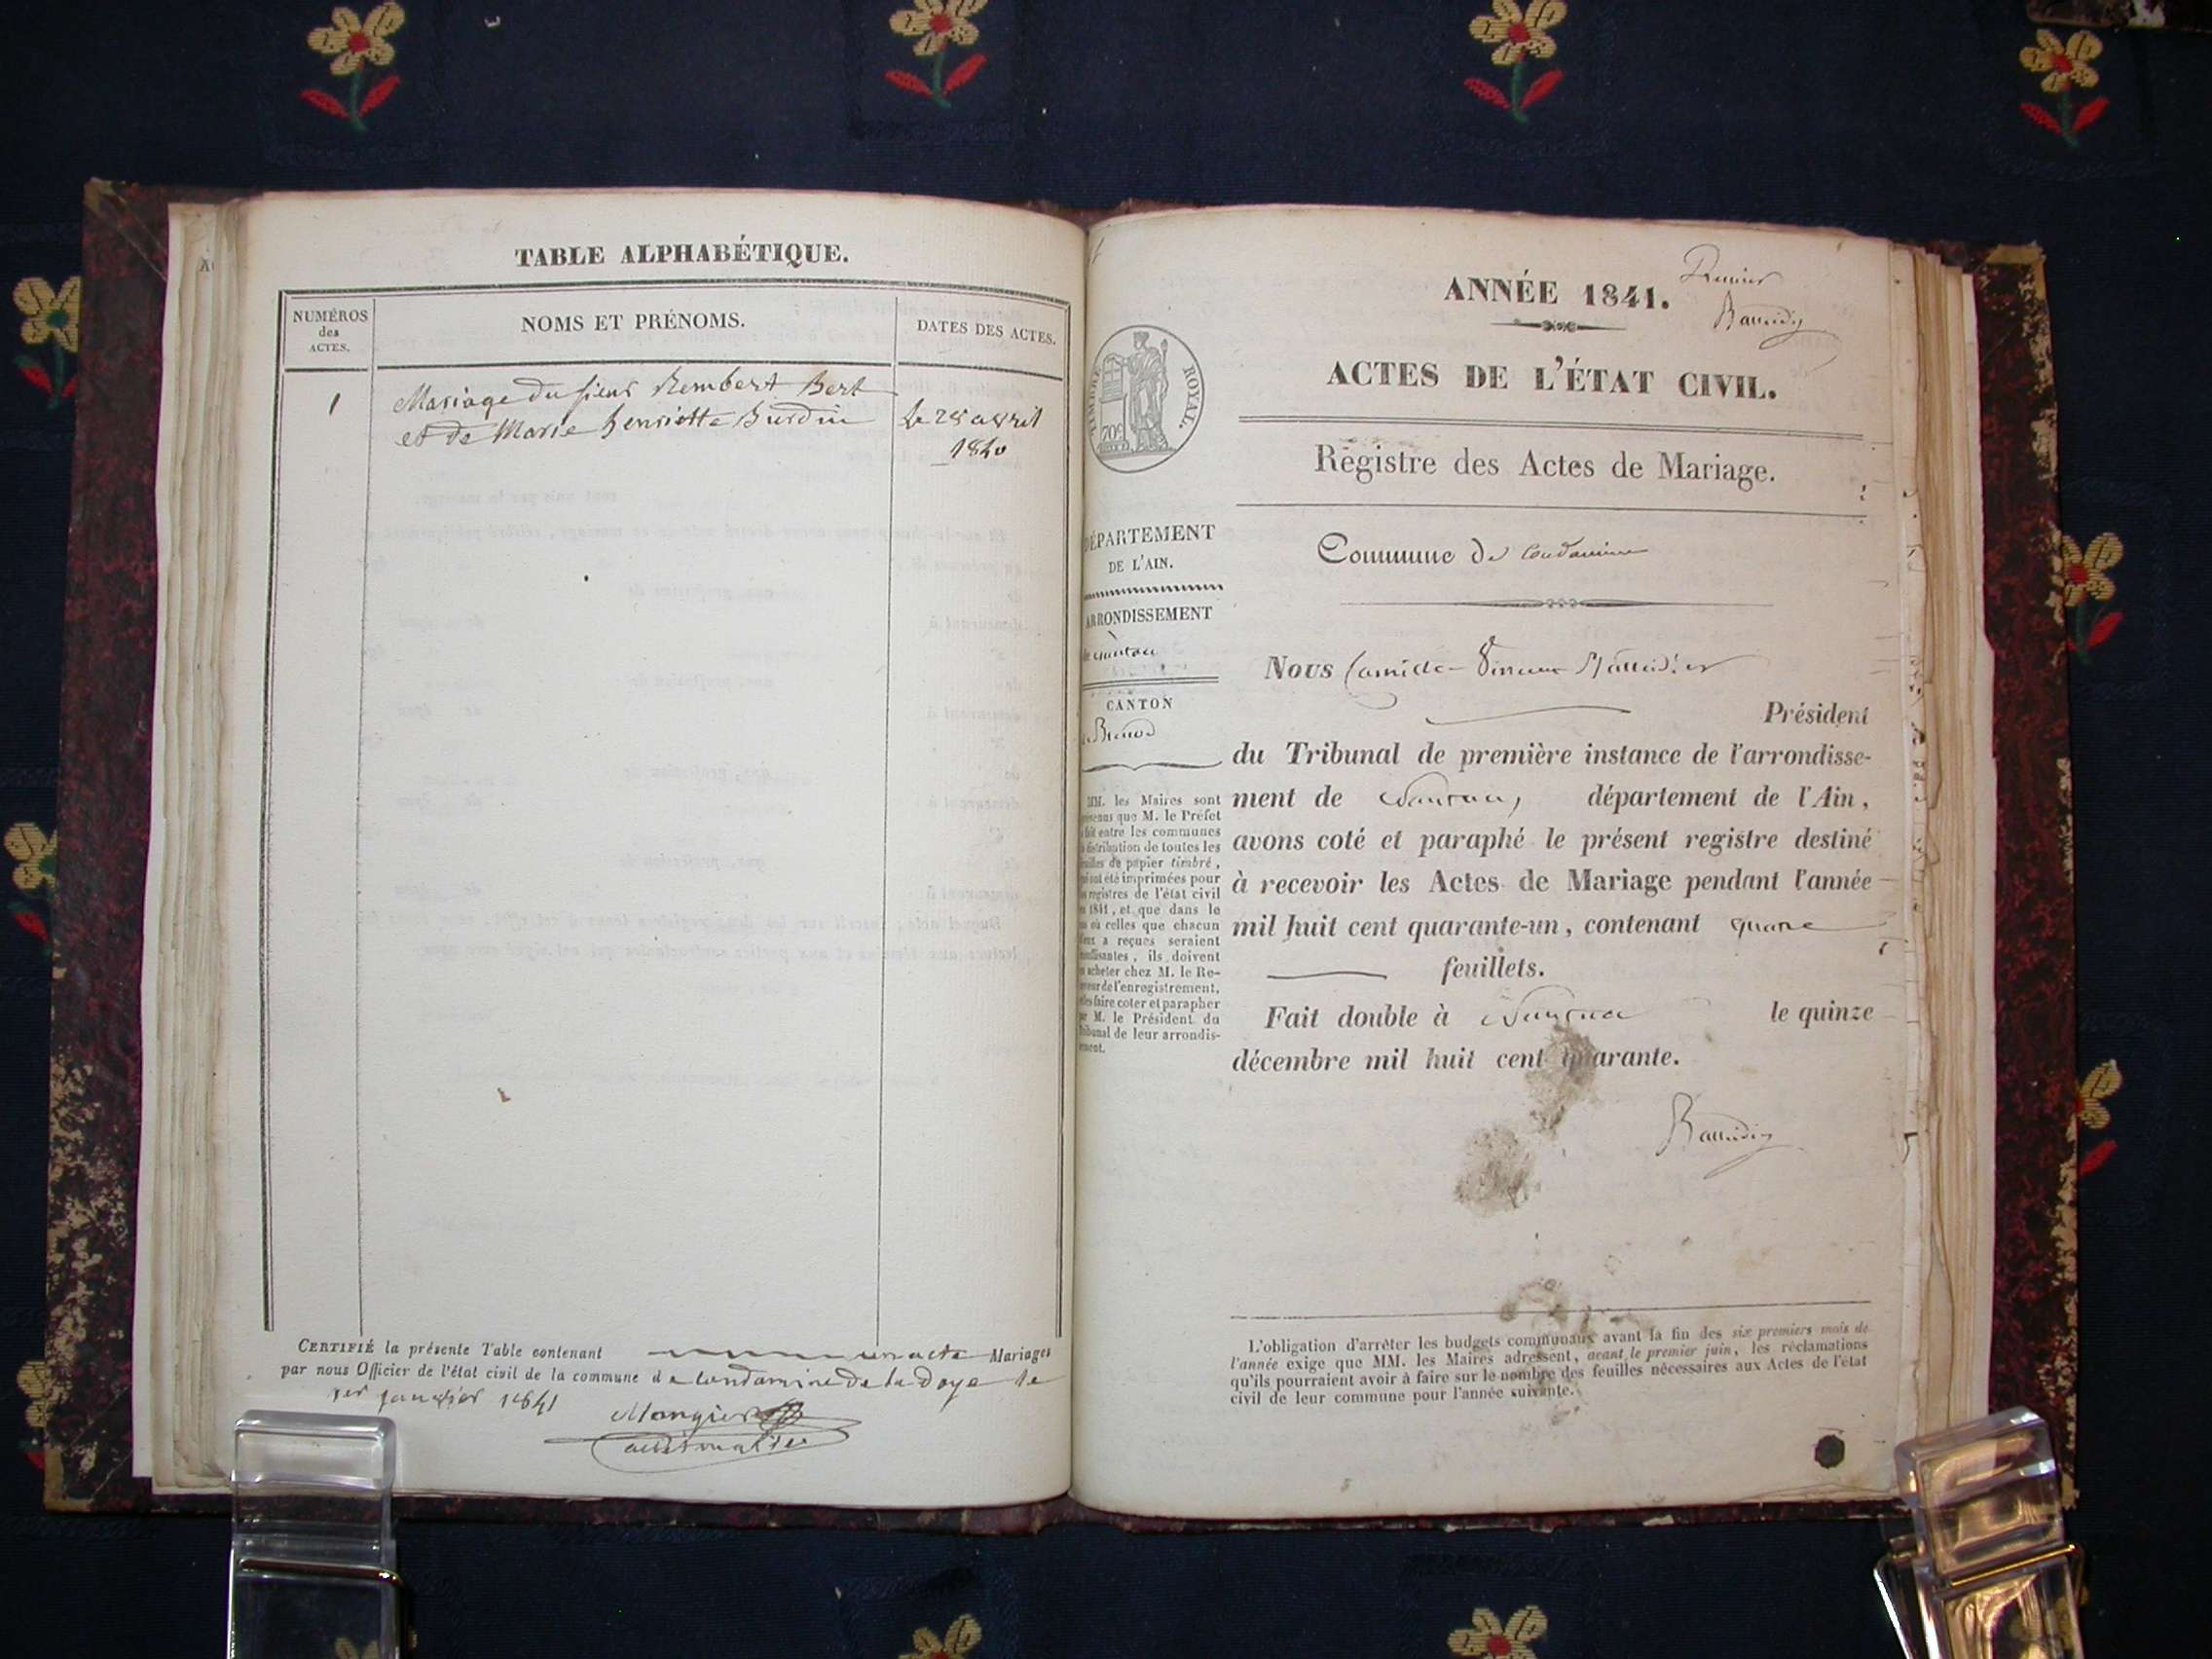 TABLE ALPHABÉTIQUE.
NUMÉROS
des
ACTES.
NOMS ET PRÉNOMS.
DATES DES ACTES.
1
Mariage du sieur Rembert Bert
et de Marie henriette Burdin
le 28 avril
1840
CERTIFIÉ la présente Table contenant un acte Mariages
par nous Officier de l'état civil de la commune de Condamine de la Doye le
1er janvier 1841
Premier
ANNÉE 1841.
ACTES DE L'ÉTAT CIVIL.
TIMBRE ROYAL.
70c
Registre des Actes de Mariage.
DÉPARTEMENT
DE L'AIN.
Commune de Condamine
ARRONDISSEMENT
de nantua
CANTON
Brenod
Nous
Président
du Tribunal de première instance de l'arrondisse-
ment de Nantua, département de l'Ain,
avons coté et paraphé le présent registre destiné
à recevoir les Actes de Mariage pendant l'année
mil huit cent quarante-un, contenant quatre
feuillets.
Fait double à Nantua le quinze
décembre mil huit cent quarante.
MM. les Maires sont
que M. le Préfet
fait entre les communes
distribution de toutes les
feuilles de papier timbré,
qui ont été imprimées pour
registres de l'état civil
1841, et que dans le
où celles que chacun
d'eux a reçues seraient
insuffisantes, ils doivent
acheter chez M. le Re-
ceveur de l'enregistrement,
les faire coter et parapher
M. le Président du
Tribunal de leur arrondis-
sement.
L'obligation d'arrêter les budgets communaux avant la fin des six premiers mois de
l'année exige que MM. les Maires adressent, avant le premier juin, les réclamations
qu'ils pourraient avoir à faire sur le nombre des feuilles nécessaires aux Actes de l'état
civil de leur commune pour l'année suivante.